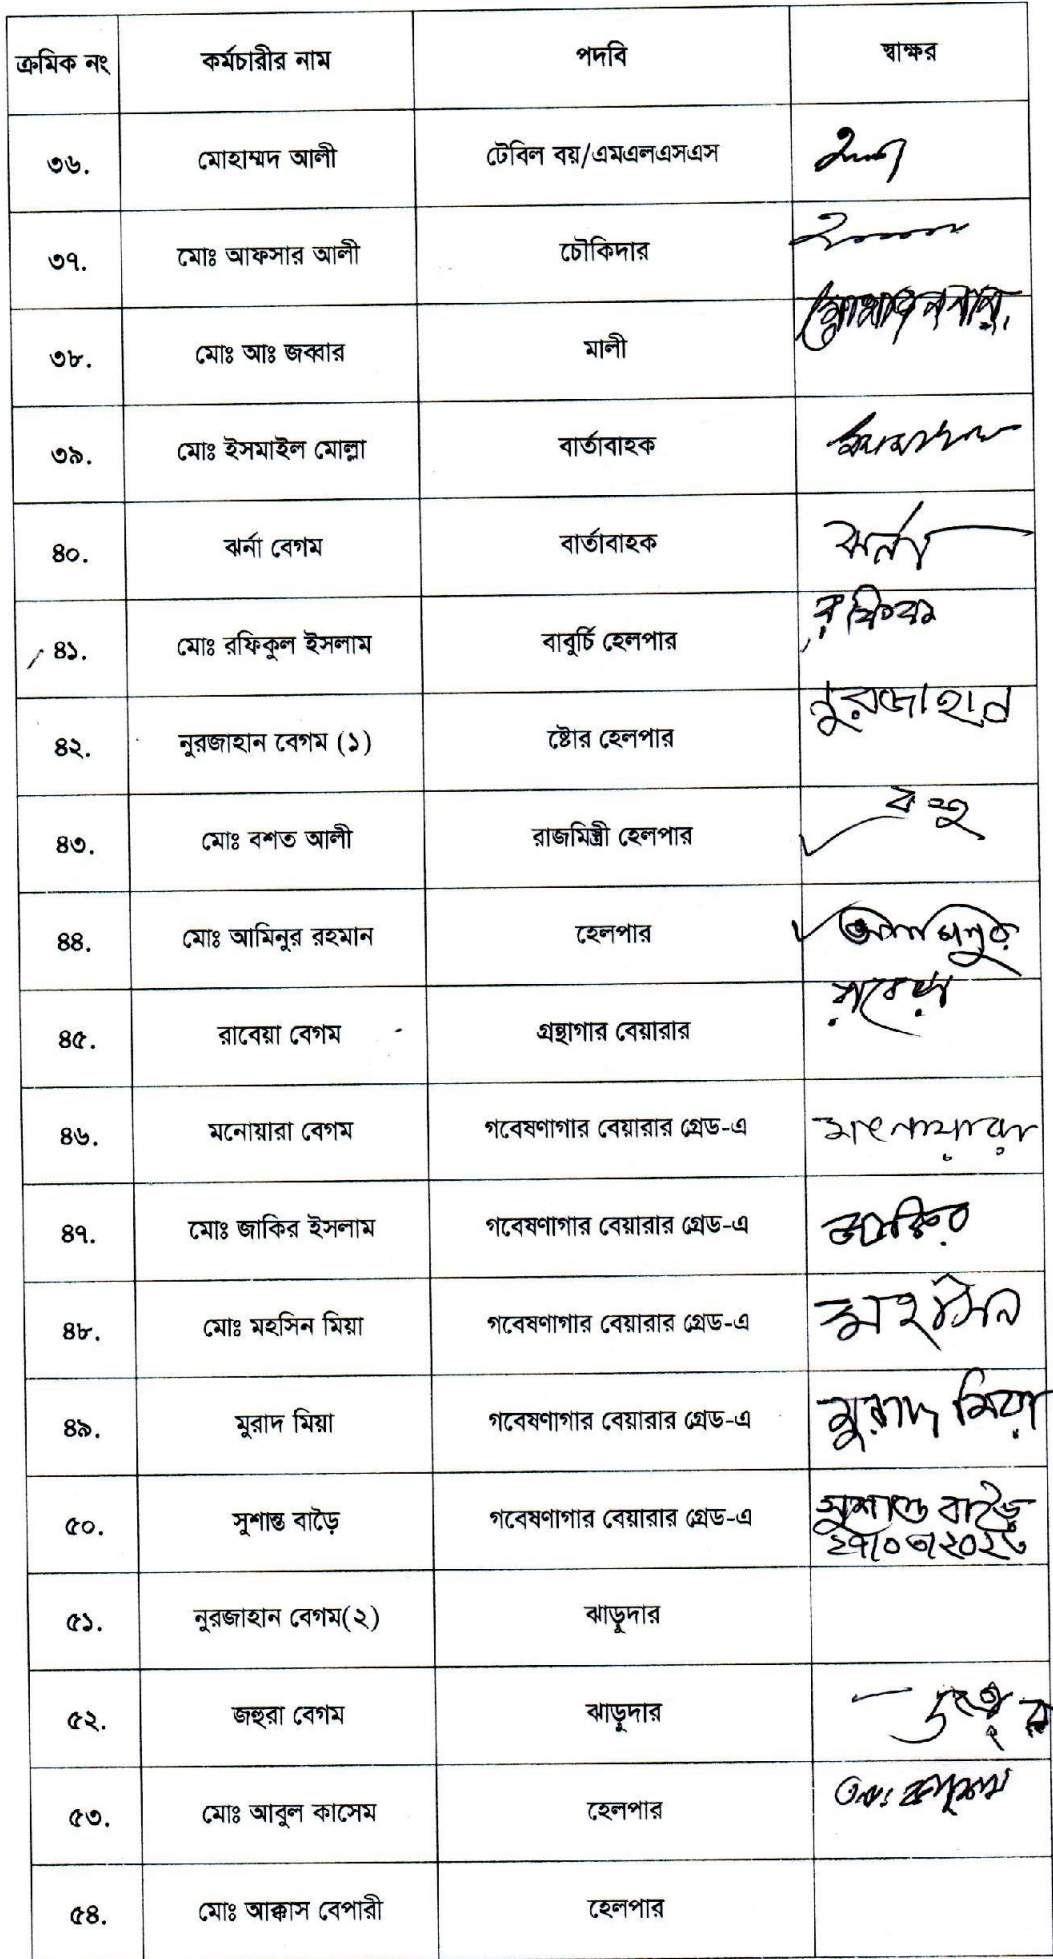 ক্রমিক নং কর্মচারীর নাম পদবি স্বাক্ষর
৩৬. মোহাম্মদ আলী টেবিল বয়/এমএলএসএস
৩৭. মোঃ আফসার আলী চৌকিদার
৩৮. মোঃ আঃ জব্বার মালী
৩৯. মোঃ ইসমাইল মোল্লা বার্তাবাহক
৪০. ঝর্না বেগম বার্তাবাহক ঝর্না
৪১. মোঃ রফিকুল ইসলাম বাবুর্চি হেলপার
৪২. নুরজাহান বেগম (১) ষ্টোর হেলপার নুরজাহান
৪৩. মোঃ বশত আলী রাজমিস্ত্রী হেলপার
৪৪. মোঃ আমিনুর রহমান হেলপার
৪৫. রাবেয়া বেগম গ্রন্থাগার বেয়ারার
৪৬. মনোয়ারা বেগম গবেষণাগার বেয়ারার গ্রেড-এ
৪৭. মোঃ জাকির ইসলাম গবেষণাগার বেয়ারার গ্রেড-এ জাকির
৪৮. মোঃ মহসিন মিয়া গবেষণাগার বেয়ারার গ্রেড-এ মহসিন
৪৯. মুরাদ মিয়া গবেষণাগার বেয়ারার গ্রেড-এ মুরাদ মিয়া
৫০. সুশান্ত বাড়ৈ গবেষণাগার বেয়ারার গ্রেড-এ সুশান্ত বাড়ৈ
৫১. নুরজাহান বেগম(২) ঝাড়ুদার
৫২. জহুরা বেগম ঝাড়ুদার
৫৩. মোঃ আবুল কাসেম হেলপার
৫৪. মোঃ আক্কাস বেপারী হেলপার